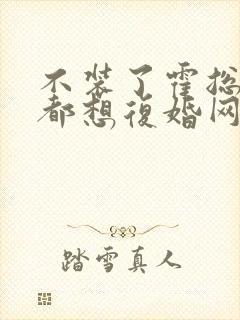 不装了霍总
都想復婚网
踏雪真人